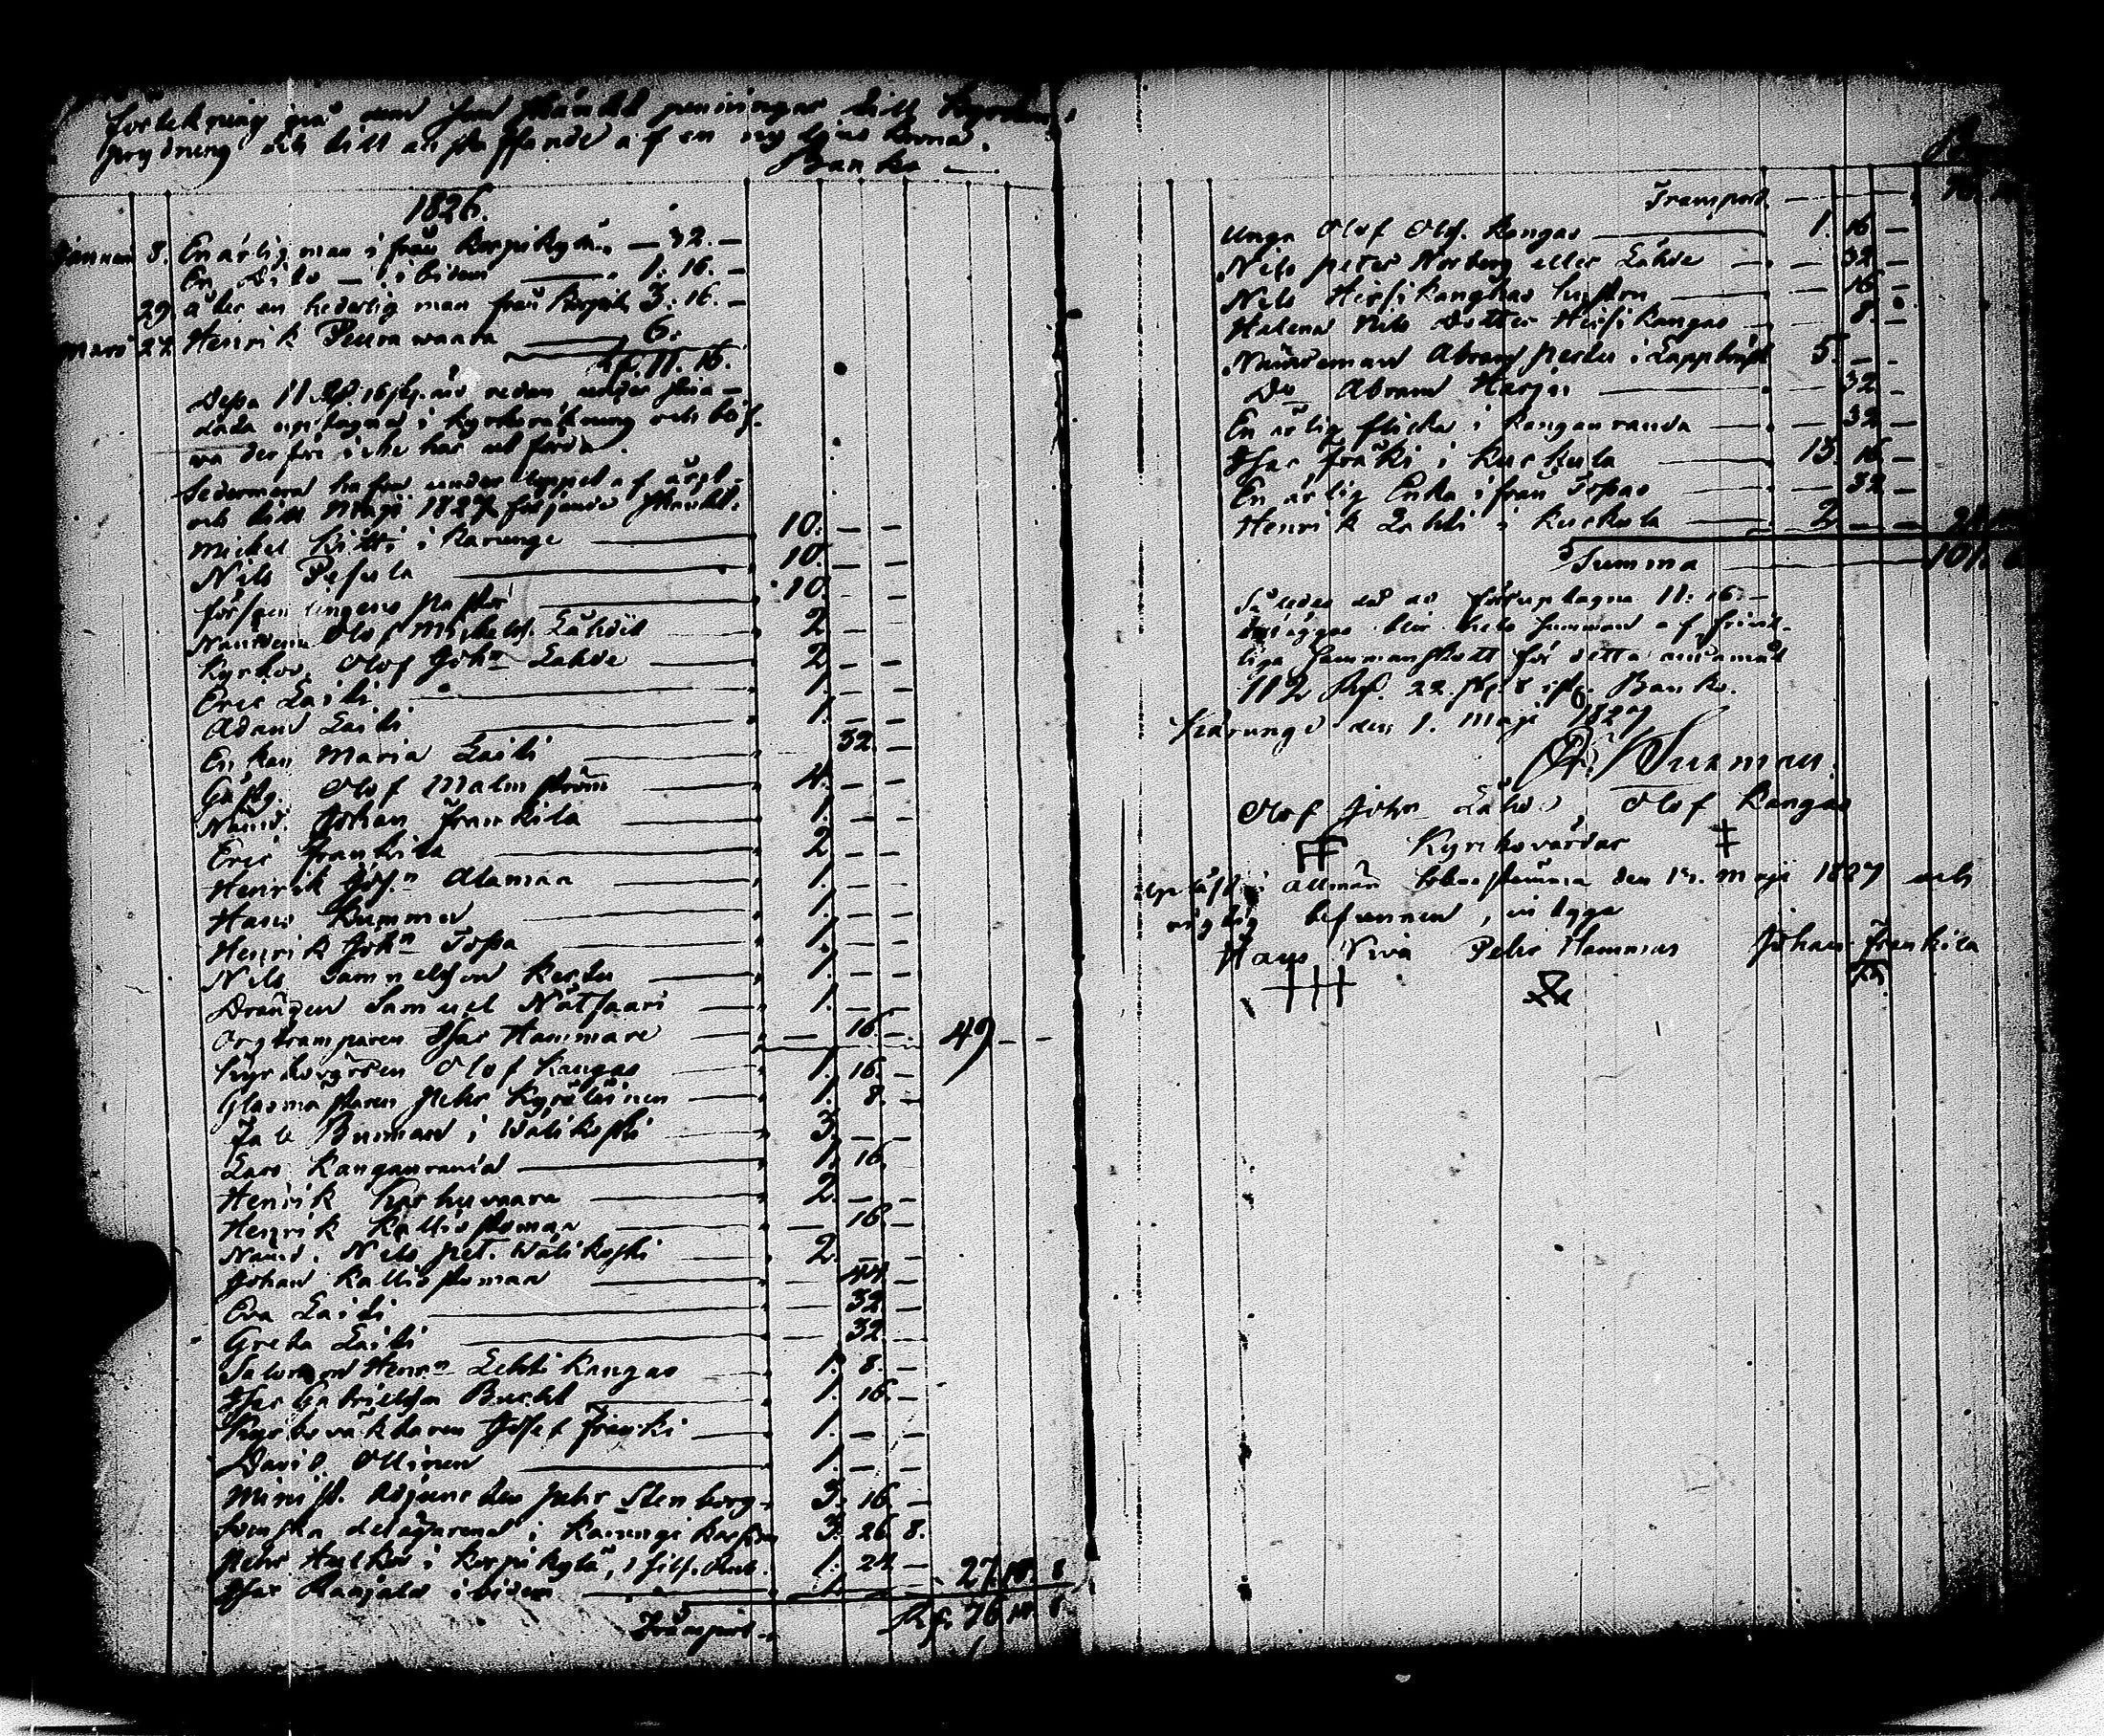 Förtekning på dem som skänkt penningar till Kyrkans
prydning och till anskaffande af en ny ljus krona.
Banko —
1826.
Januari 8. En ärlig man ifrån Korpikylä, — 32. —
En Dito — ibidem — 1. 16. —
29. åter en hederlig man från Korpik. 3. 16. —
Mars 27. Henrik Peura waara — 6.
Rd. 11. 16.
Dessa 11 Rd. 16 sk. äro redan under
Låda upptagna i Kyrkoräkning och böf-
wa derföre icke här utföras.
Sedermera hafva under loppet af året
och till Maji 1827 följande skänkt:
Mickel Kitti i Karungi — 10. — —
Nils Pesula — 10. — —
Församlingens Pastor — 10. — —
Nämdem. Olof Mickelss. Lähdet — 2. — —
Kyrkov. Olof John Lahde — 2. — —
Eric Laiti — 1. — —
Adam Laiti — 1. — —
Enkan Maria Laiti — 32. —
Gästg. Olof Malmström — 4. — —
Nämd. Johan Frankila — 1. — —
Eric Frankila — 2. — —
Henrik Joh.n Alamaa — 1. — —
Hans Kummu — 1. — —
Henrik John Tossa — 1. — —
Nils Samuelsson Kerttu — 1. — —
Drängen Samuel Nätsaari — 1. — —
Orgtramparen Isac Hammare — — 16. — 49. — —
Kyrkovärden Olof Kangas — 1. 16. —
Glasmästaren Pehr Kyräläinen — 1. 8. —
Fale Burman i Wälikoski — 3. — —
Lars Kanganranta — 1. 16.
Henrik Karhuwaara — 2. — —
Henrik Kalliostoman — — 16. —
Nämd. Nils Pet. Wälikoski — 2. — —
Johan Kalliostoman — — 44. —
Eva Laiti — — 32. —
Greta Laiti — — 32. —
Salomon Henrn Lehtikangas — 1. 8. —
Isac Gabrielsson Bucht — 1. 16. —
Kyrkoväktaren Josef Fränki — 1. — —
David Ollinen — 1. — —
Minist. Adjuncten Pehr Stenborg — 3. 16. —
Svenska delägarena i Karungi — 3. 26. 8.
Pehr Hulkoi i Korpikylä, — 1. 24. —
Isac Raajala ibidem — 1. — — 27. 18. 8
Transport — Rd. 76. 18. 8.
Transport —
Unga Olof Olofs. Kangas — 1. 16. —
Nils Peter Norberg eller Lähde — — 32. —
Nils Hirsikanghas hustru — — 16. —
Halena Nils dotter Hirsikangas — — 8. —
Nämdeman Abram Perttu i Lappträsk 5. — —
Do Abram Harju — — 32. —
En ärlig flicka i Kanganranda — — 32 —
Isac Fräki i Kuckula — 13. 16. —
En ärlig Enka ifrån Tossas — — 32 —
Henrik Lahti i Kuckula — 2. — —
Summa — 101. 6
Således då de förupptagna 11. 16. —
tilläggas blir hela summan af frivil-
liga sammanskott för detta ändamål
112 Rd. 22 sk. 8 rst. Banko.
Karungi den 1. Maji 1827
Olof John Lähde Olof Kangas
Kyrkovärdar
Uppläst i allmän Sockenstämma den 13. Maji 1827 och
riktig befunnen, intyga
Hans Niva Pehr Hammar Johan Frankila